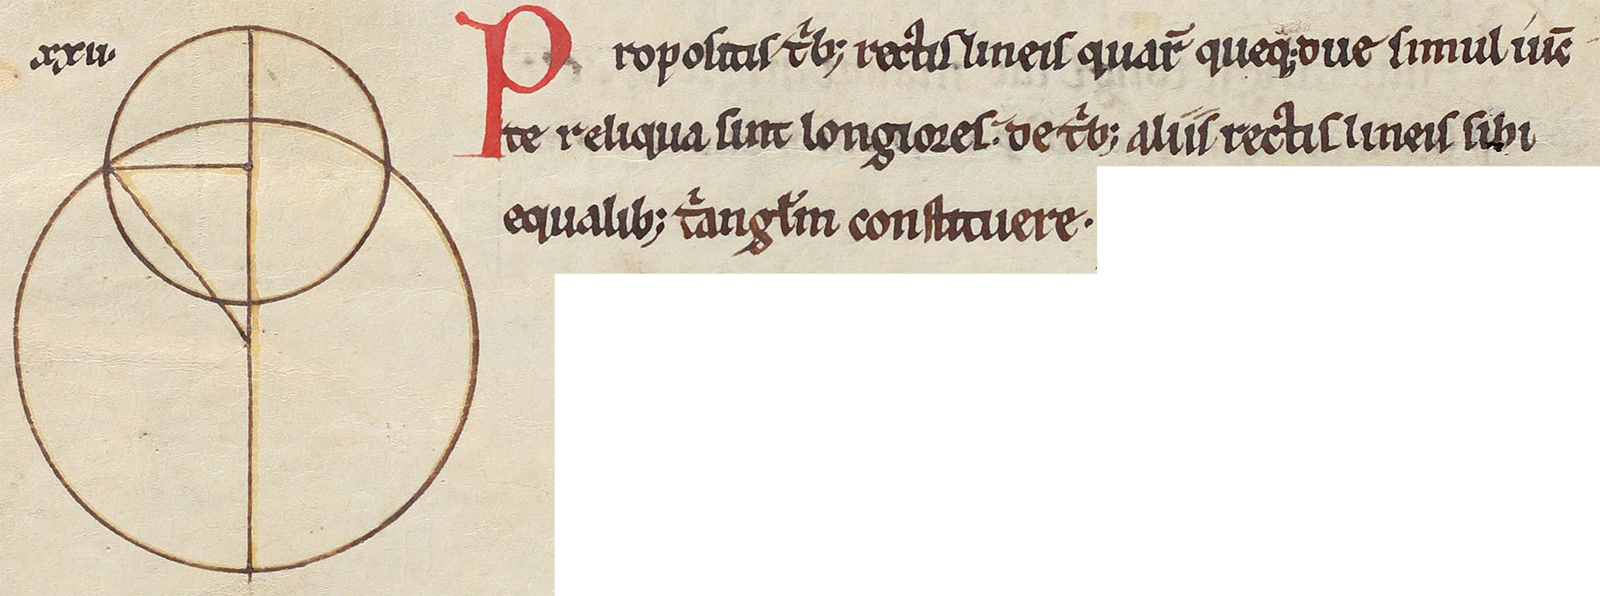 xxii.
Propositis tͥb; rectis lineis quarͫ queq; due simul iūc
te reliqua sunt longiores. de tͥb; aliis rectis lineis sibi
equalib; tͥanglm̄ constituere.